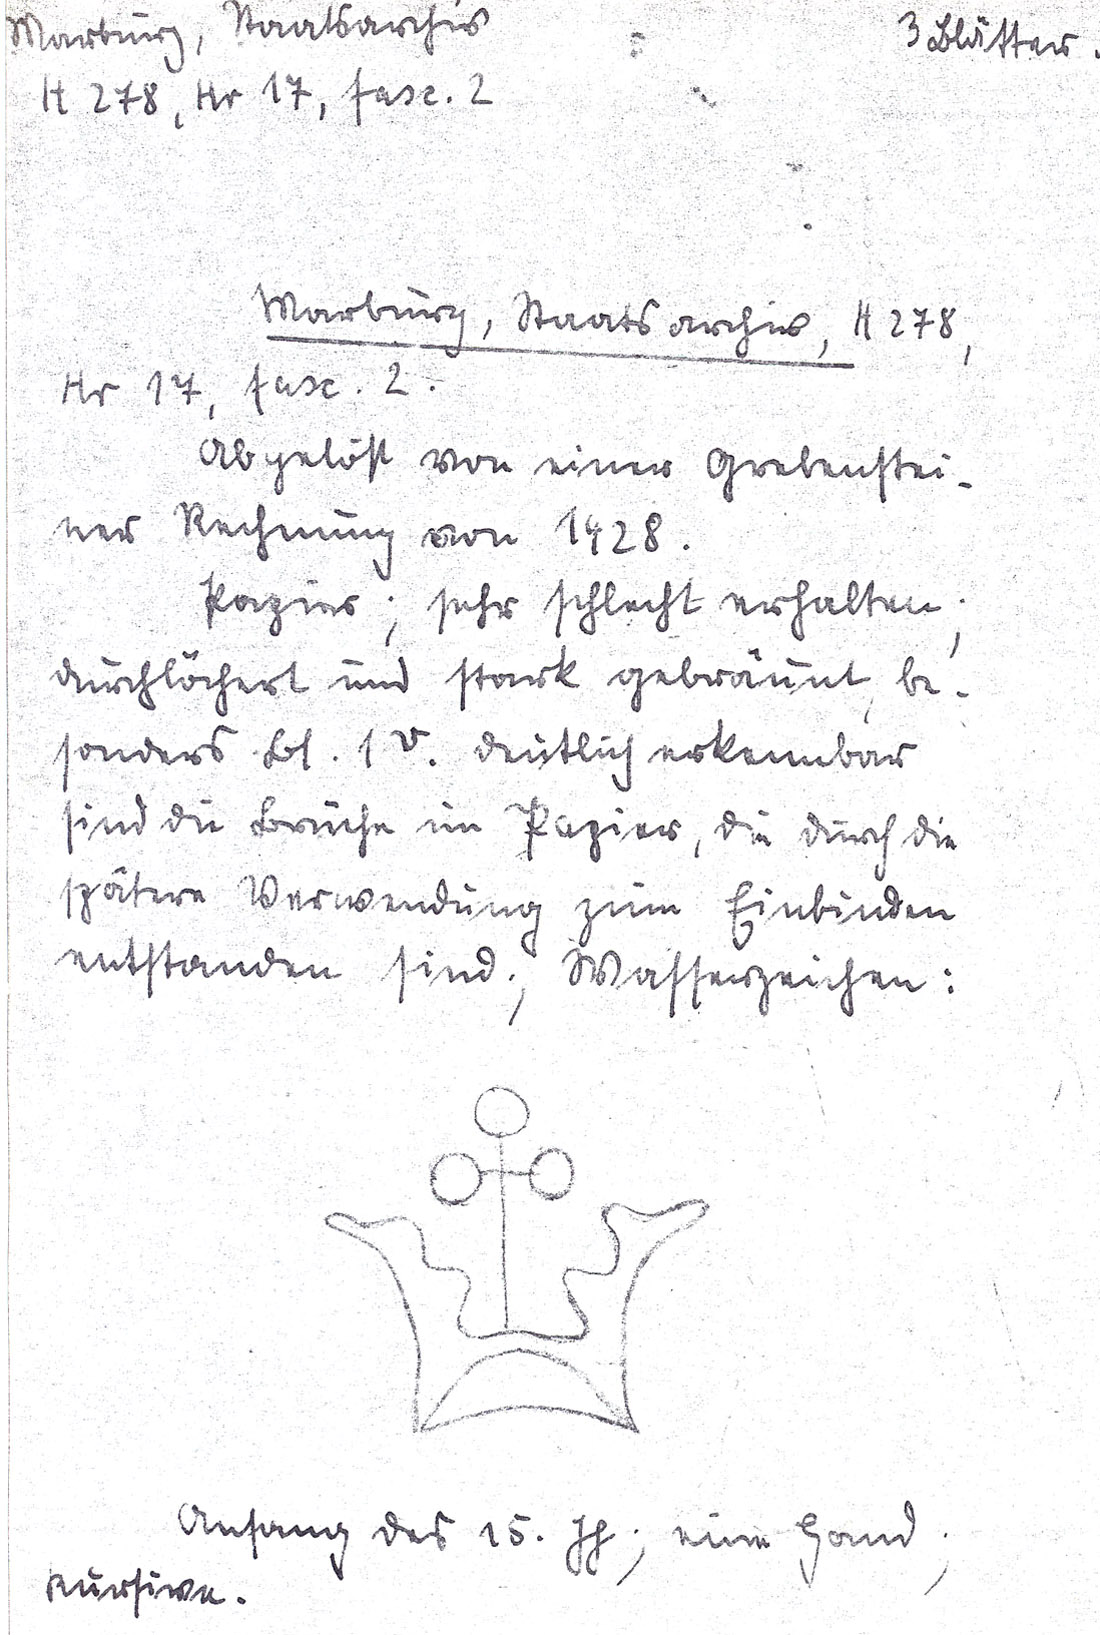 Marburg, Staatsarchiv
3 Blätter.
H 278, Nr 17, fasc. 2
Marburg, Staatsarchiv, H 278,
Nr 17, fasc. 2.
Abgelöst von einer Grebenstei-
ner Rechnung von 1428.
Papier; sehr schlecht erhalten;
durchlöchert und stark gebräunt, be-
sonders Bl. 1 v. deutlich erkennbar
sind die Brüche im Papier, die durch die
spätere Verwendung zum Einbinden
entstanden sind; Wasserzeichen:
Anfang des 15. Jh; eine Hand;
kursive.